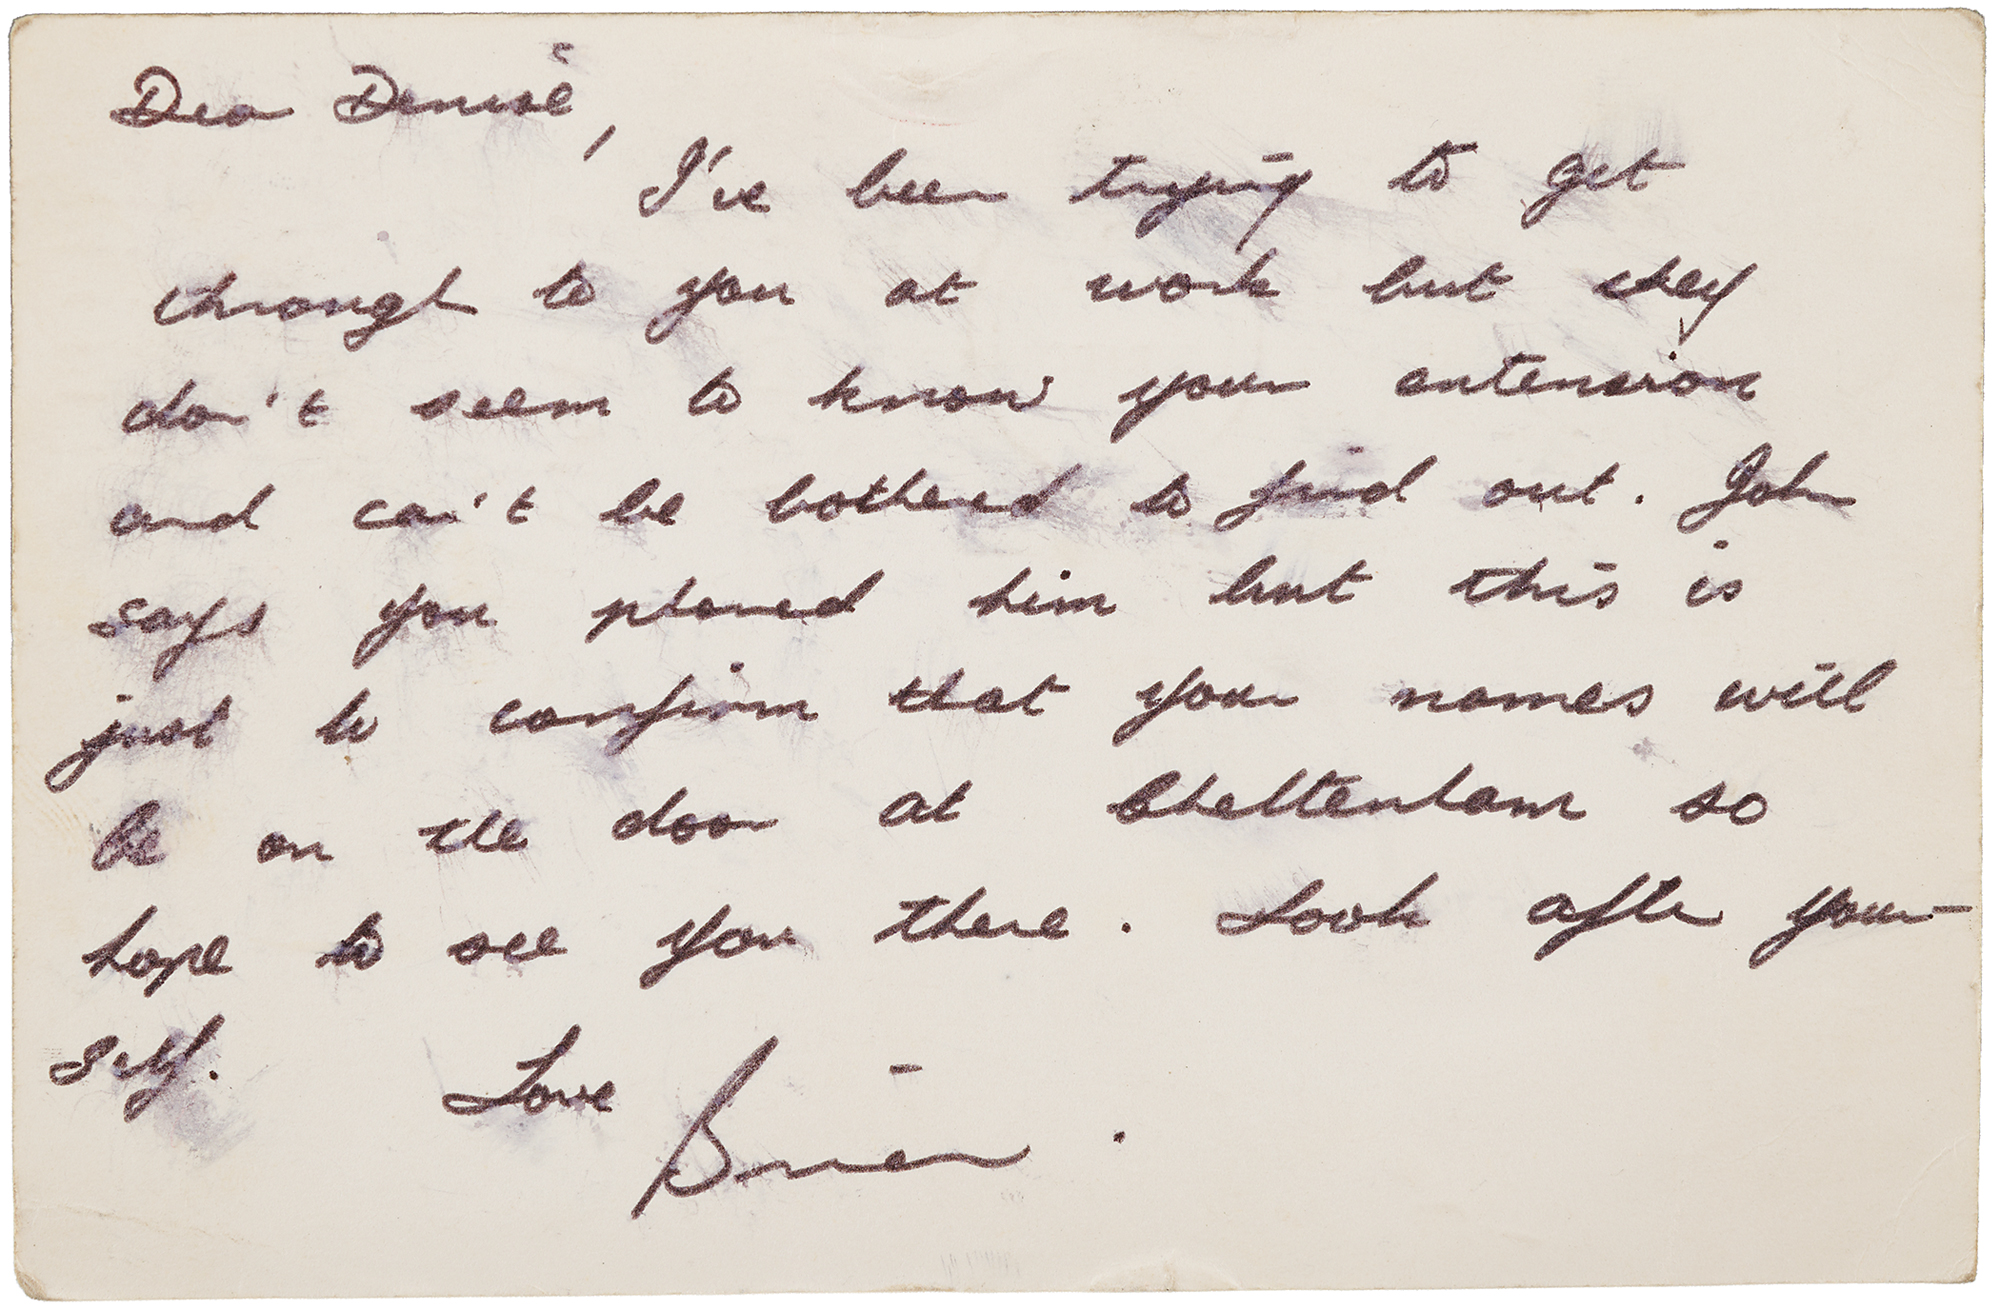 Dear Denise,
I've been trying to get
through to you at work but they
don't seem to know your extension
and can't be bothered to find out. John
says you phoned him but this is
just to confirm that your names will
be on the door at Cheltenham so
hope to see you there. Look after your-
self. Love
Brian.